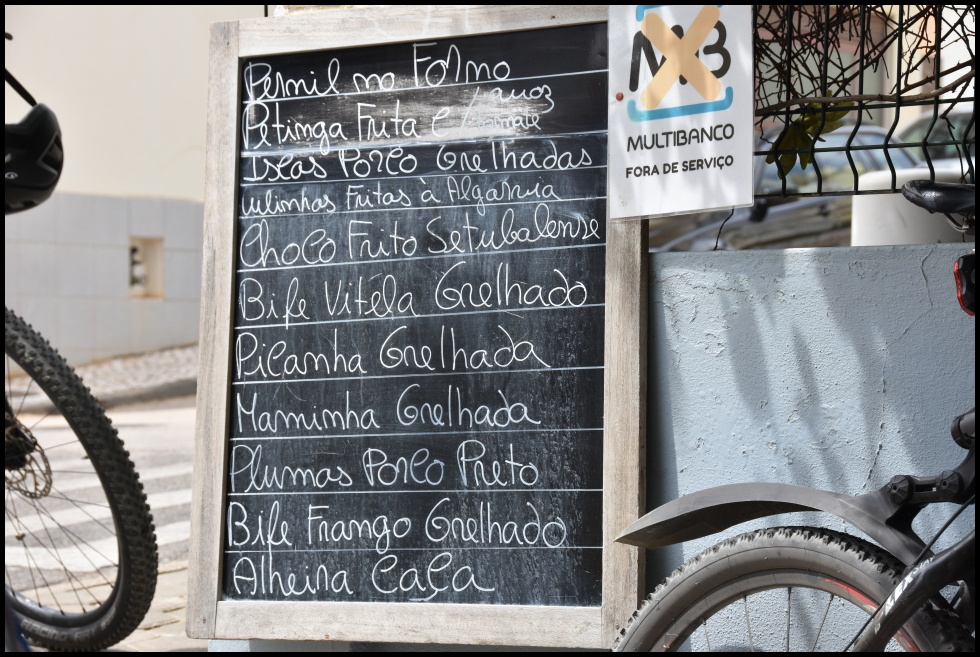 Pernil no Forno
Petinga Frita c/ arroz tomate
Iscas Porco Grelhadas
ulinhas Fritas à Algarvia
Choco Frito Setubalense
Bife Vitéla Grelhado
Picanha Grelhada
Maminha Grelhada
Plumas Porco Preto
Bife Frango Grelhado
Alheira Caça
MB
MULTIBANCO
FORA DE SERVIÇO